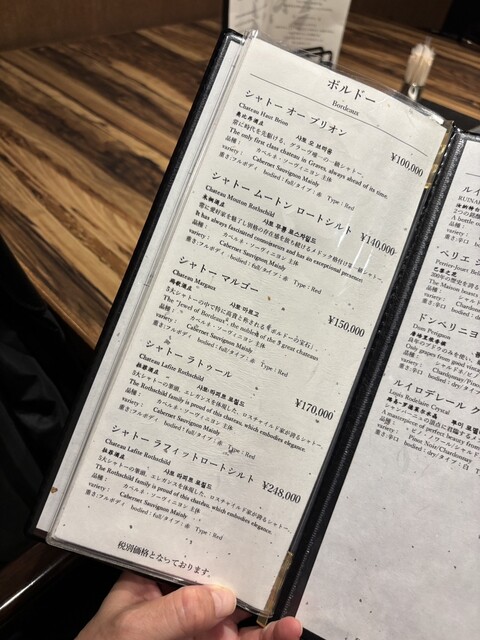 ボルドー
Bordeaux
シャトー オー ブリオン ¥100,000
Chateau Haut Brion 샤또 오 브리옹
常に時代を先駆ける、グラーヴ唯一の一級シャトー。
The only first chateau in Graves, always ahead of its time.
品種: カベルネ・ソーヴィニヨン 主体
variety: Cabernet Sauvignon Mainly
重さ:フルボディ bodied : full/タイプ:赤 Type : Red
シャトー ムートン ロートシルト ¥140,000
Chateau Mouton Rothschild
It has always fascinated connoisseurs and has an exceptional presence!
品種: カベルネ・ソーヴィニヨン 主体
variety: Cabernet Sauvignon Mainly
重さ:フルボディ bodied : full/タイプ:赤 Type : Red
シャトー マルゴー ¥150,000
Chateau Margaux 샤또 마르고
5大シャトーの中で特に高貴と称されるボルドーの宝石」。
The "Jewel of Bordeaux", the noblest of the 5 great chateaux
品種: カベルネ・ソーヴィニヨン 主体
variety: Cabernet Sauvignon Mainly
重さ:フルボディ bodied : full/タイプ:赤 Type : Red
シャトー ラトゥール ¥170,000
Chateau Lafite Rothschild
5大シャトーの筆頭、エレガンスを体現した、ロスチャイルド家が誇るシャトー。
The Rothschild family is proud of this chateau, which embodies elegance.
品種: カベルネ・ソーヴィニヨン 主体
variety: Cabernet Sauvignon Mainly
重さ:フルボディ bodied : full/タイプ:赤 Type : Red
シャトー ラフィットロートシルト ¥248,000
Chateau Lafite Rothschild
5大シャトーの筆頭、エレガンスを体現した、ロスチャイルド家が誇るシャトー。
The Rothschild family is proud of this chateau, which embodies elegance.
品種: カベルネ・ソーヴィニヨン 主体
variety: Cabernet Sauvignon Mainly
重さ:フルボディ bodied : full/タイプ:赤 Type : Red
税別価格となっております。
ルイナ
RUINAR
品種:
variety:
重さ:辛口
ペリエ
Perrier-Jouet Bell
The Maison boasts
品種:
variety: Chardonnay/Pino
重さ:辛口 bodied : dry/タイ
ドンペリニヨ
Dom Perignon
Only grapes from good vine
品種: シャルドネ/
variety: Chardonnay/P
重さ:辛口 bodied : dry/タイ
ルイロデレール ク
Louis Roederer Crystal
A masterpiece of perfect beauty from
品種: ピノ・ノワール/シャルド
variety: Pinot Noir/Chardonnay
重さ:辛口 bodied : dry/タイプ:白